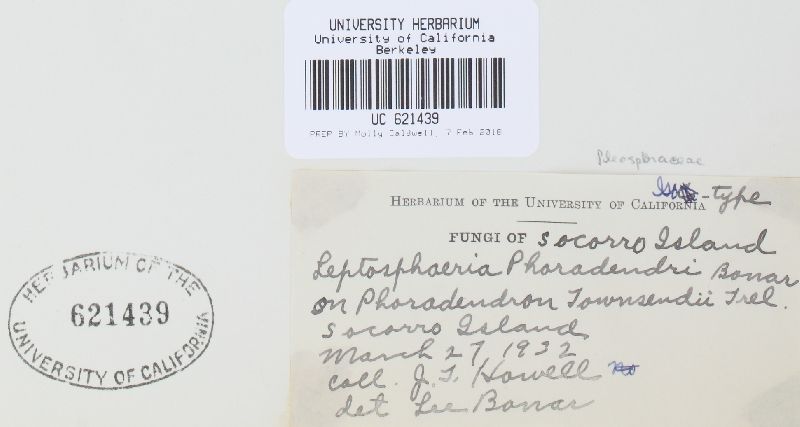 UNIVERSITY HERBARIUM
University of California
Berkeley
UC 621439
PREP BY Molly Caldwell, 7 Feb 2018
Pleosporaceae
Iso-type
HERBARIUM OF THE UNIVERSITY OF CALIFORNIA
FUNGI OF Socorro Island
Leptosphaeria Phoradendri Bonar
on Phoradendron Townsendii Trel.
Socorro Island
March 27, 1932
coll. J. T. Howell
det Lee Bonar
HERBARIUM OF THE
621439
UNIVERSITY OF CALIFORNIA